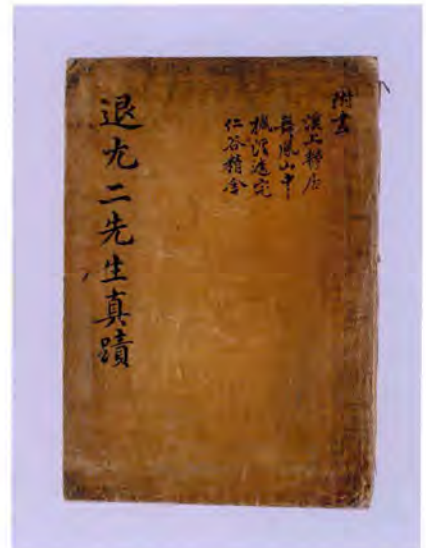 附畵
溪上靜居
舞鳳山中
楓溪遺宅
仁谷精舍
退尤二先生真蹟